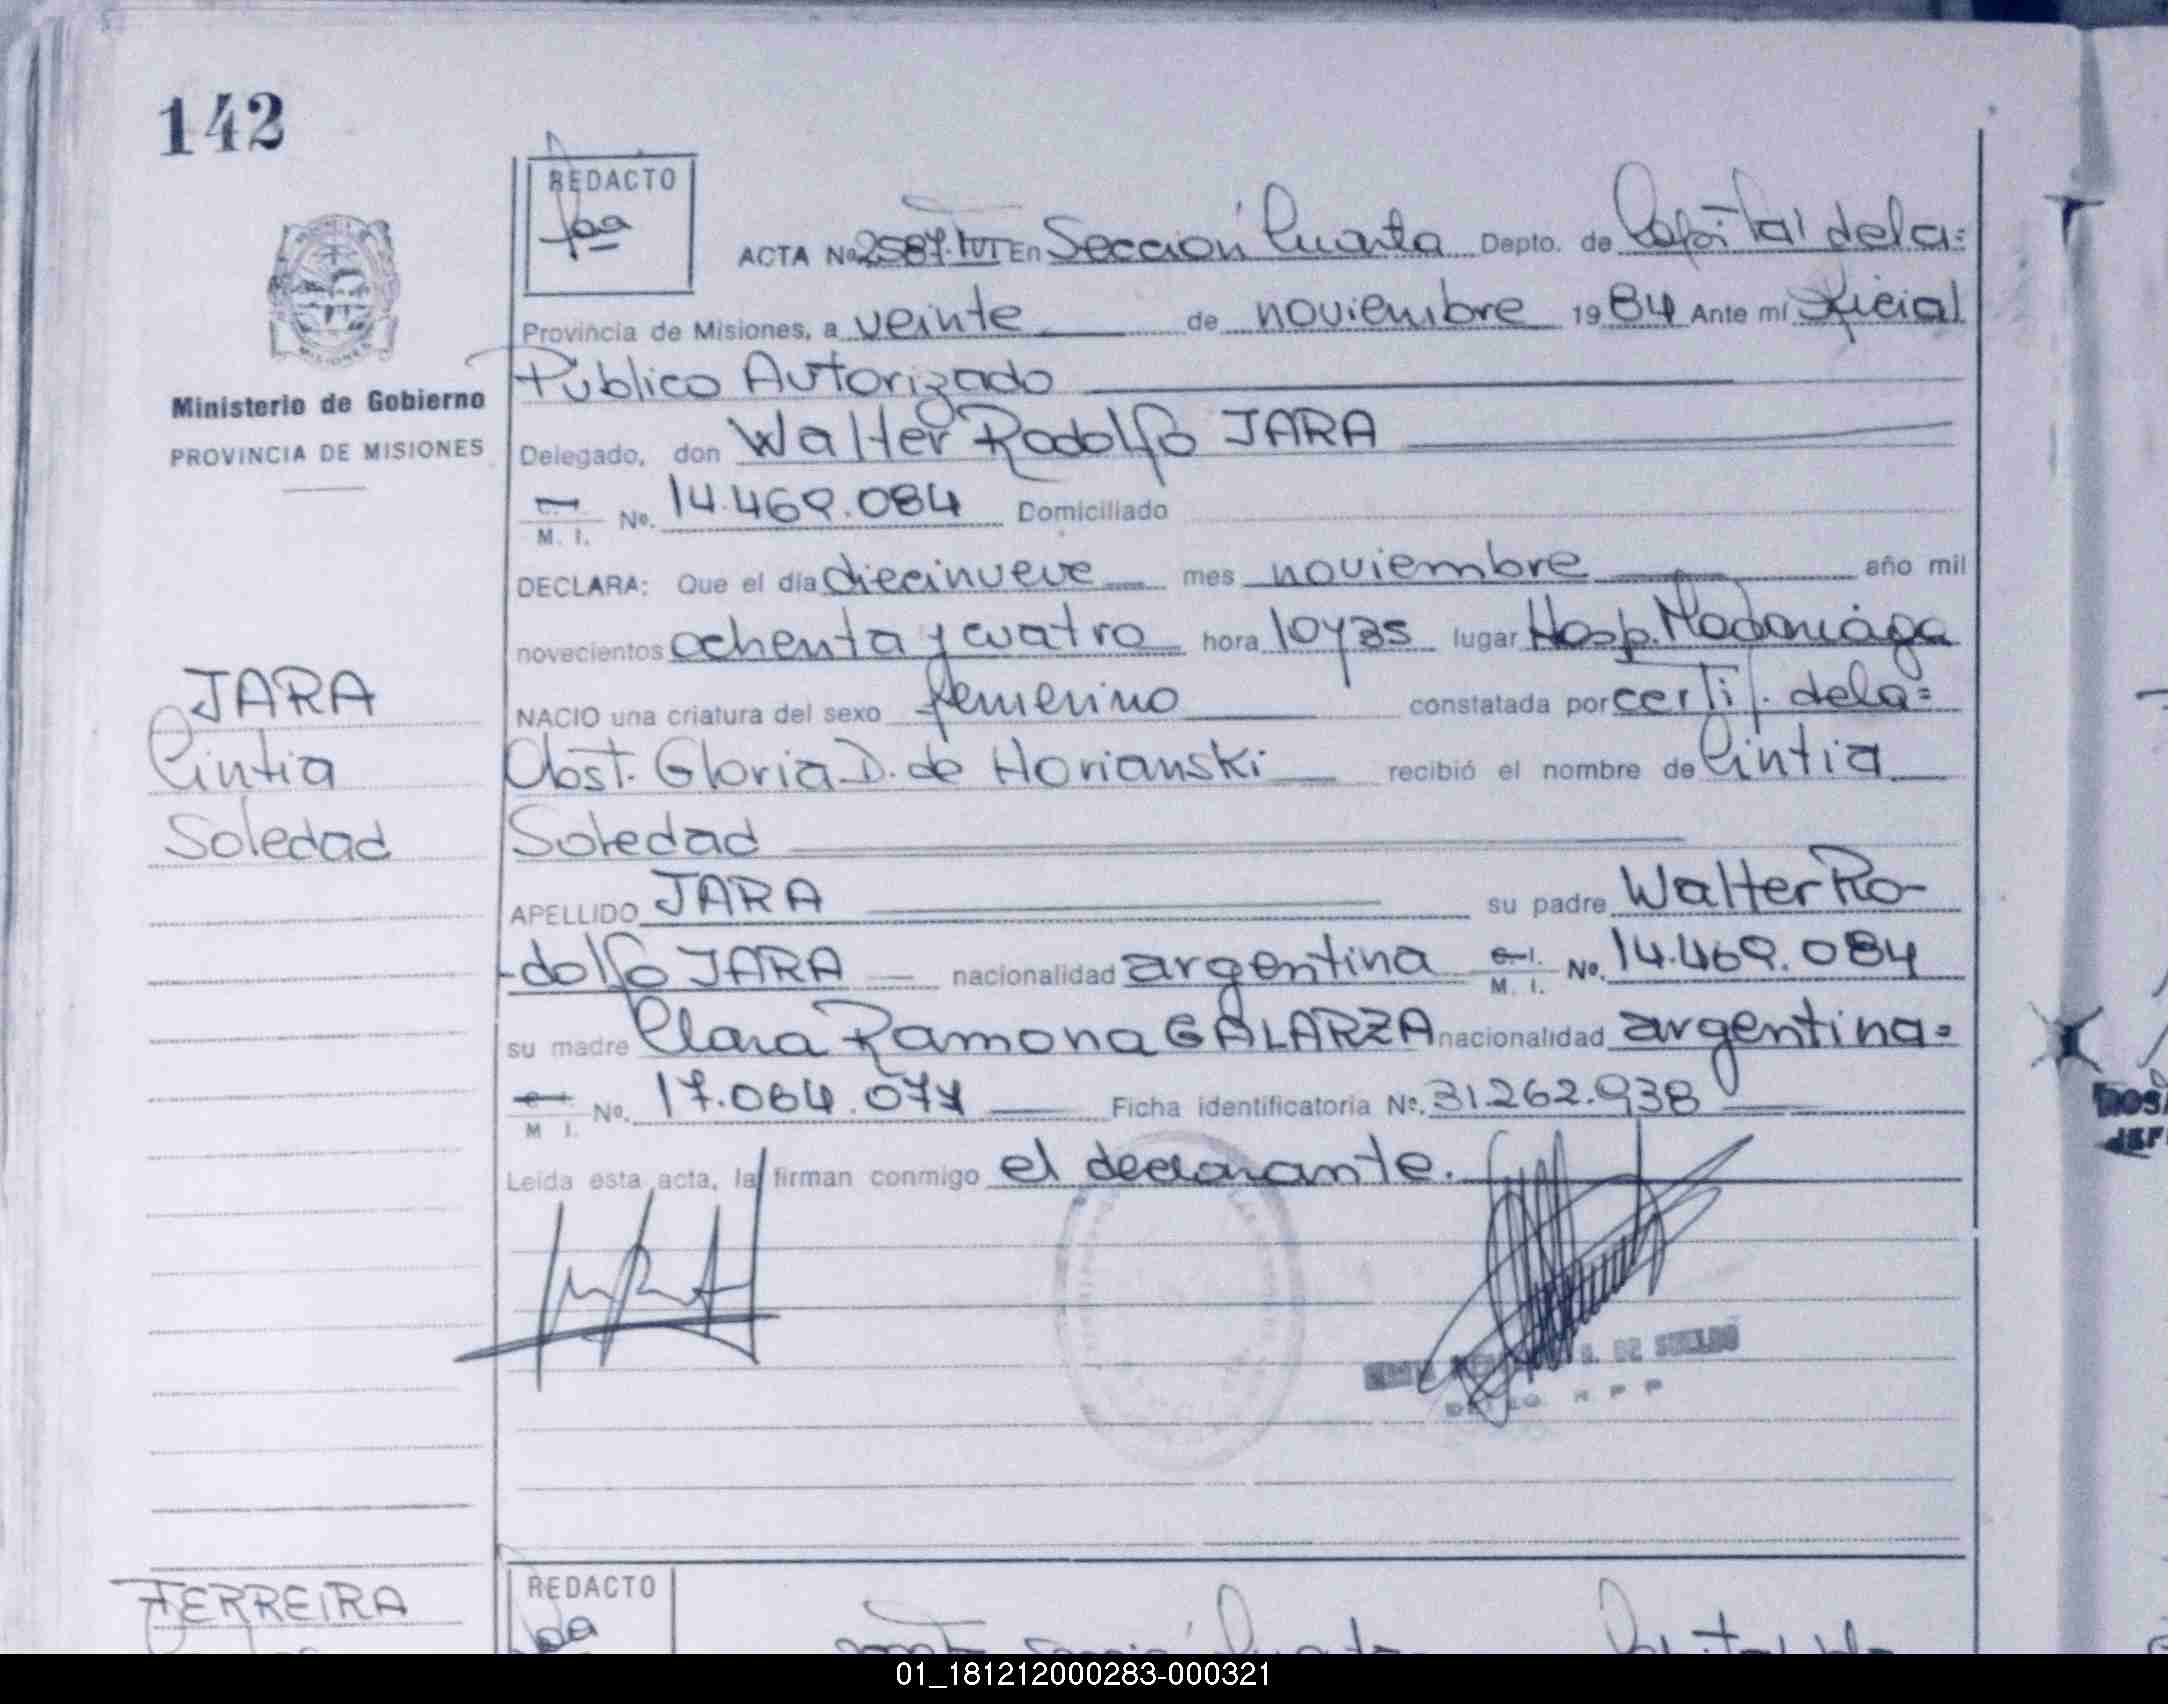 142
REDACTO
ACTA No 2587. En Sección Cuarta Depto. de Capital de la=
Provincia de Misiones, a veinte de noviembre 1984 Ante mí Oficial
Ministerio de Gobierno
PROVINCIA DE MISIONES
Público Autorizado
Delegado, don Walter Rodolfo JARA
M. I. No. 14.469.084 Domiciliado
DECLARA: Que el día diecinueve mes noviembre año mil
novecientos ochenta y cuatro hora 10 y 35 lugar Hosp. Madariaga
NACIO una criatura del sexo femenino constatada por certif. de la=
JARA
Cintia
Soledad
Obst. Gloria D. de Horianski recibió el nombre de Cintia
Soledad
APELLIDO JARA su padre Walter Ro-
-dolfo JARA nacionalidad argentina M. I. No. 14.469.084
su madre Clara Ramona GALARZA nacionalidad argentina=
M I. No. 17.064.071 Ficha identificatoria No. 31.262.938
Leída esta acta, la firman conmigo el declarante.
DE SUELDO
R P P
FERREIRA
REDACTO
01_181212000283-000321